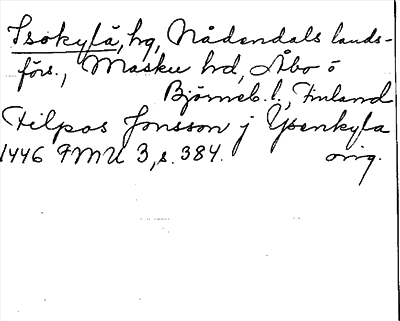 Isokylä, hg, Nådendals lands-
förs., Masku hd, Åbo o
Björneb. l., Finland
Filpos Jonsson j Ysenkyla
1446 FMU 3, s. 384. orig.